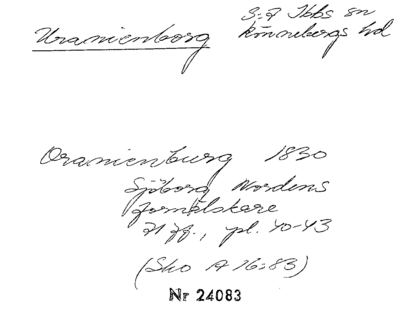 Uranienborg
S:t Ibbs sn
Rönnebergs hd
Oranienburg 1830
Sjöborg Nordens
fornälskare
71 ff., pl. 40-43
(Sko A 16:83)
Nr 24083